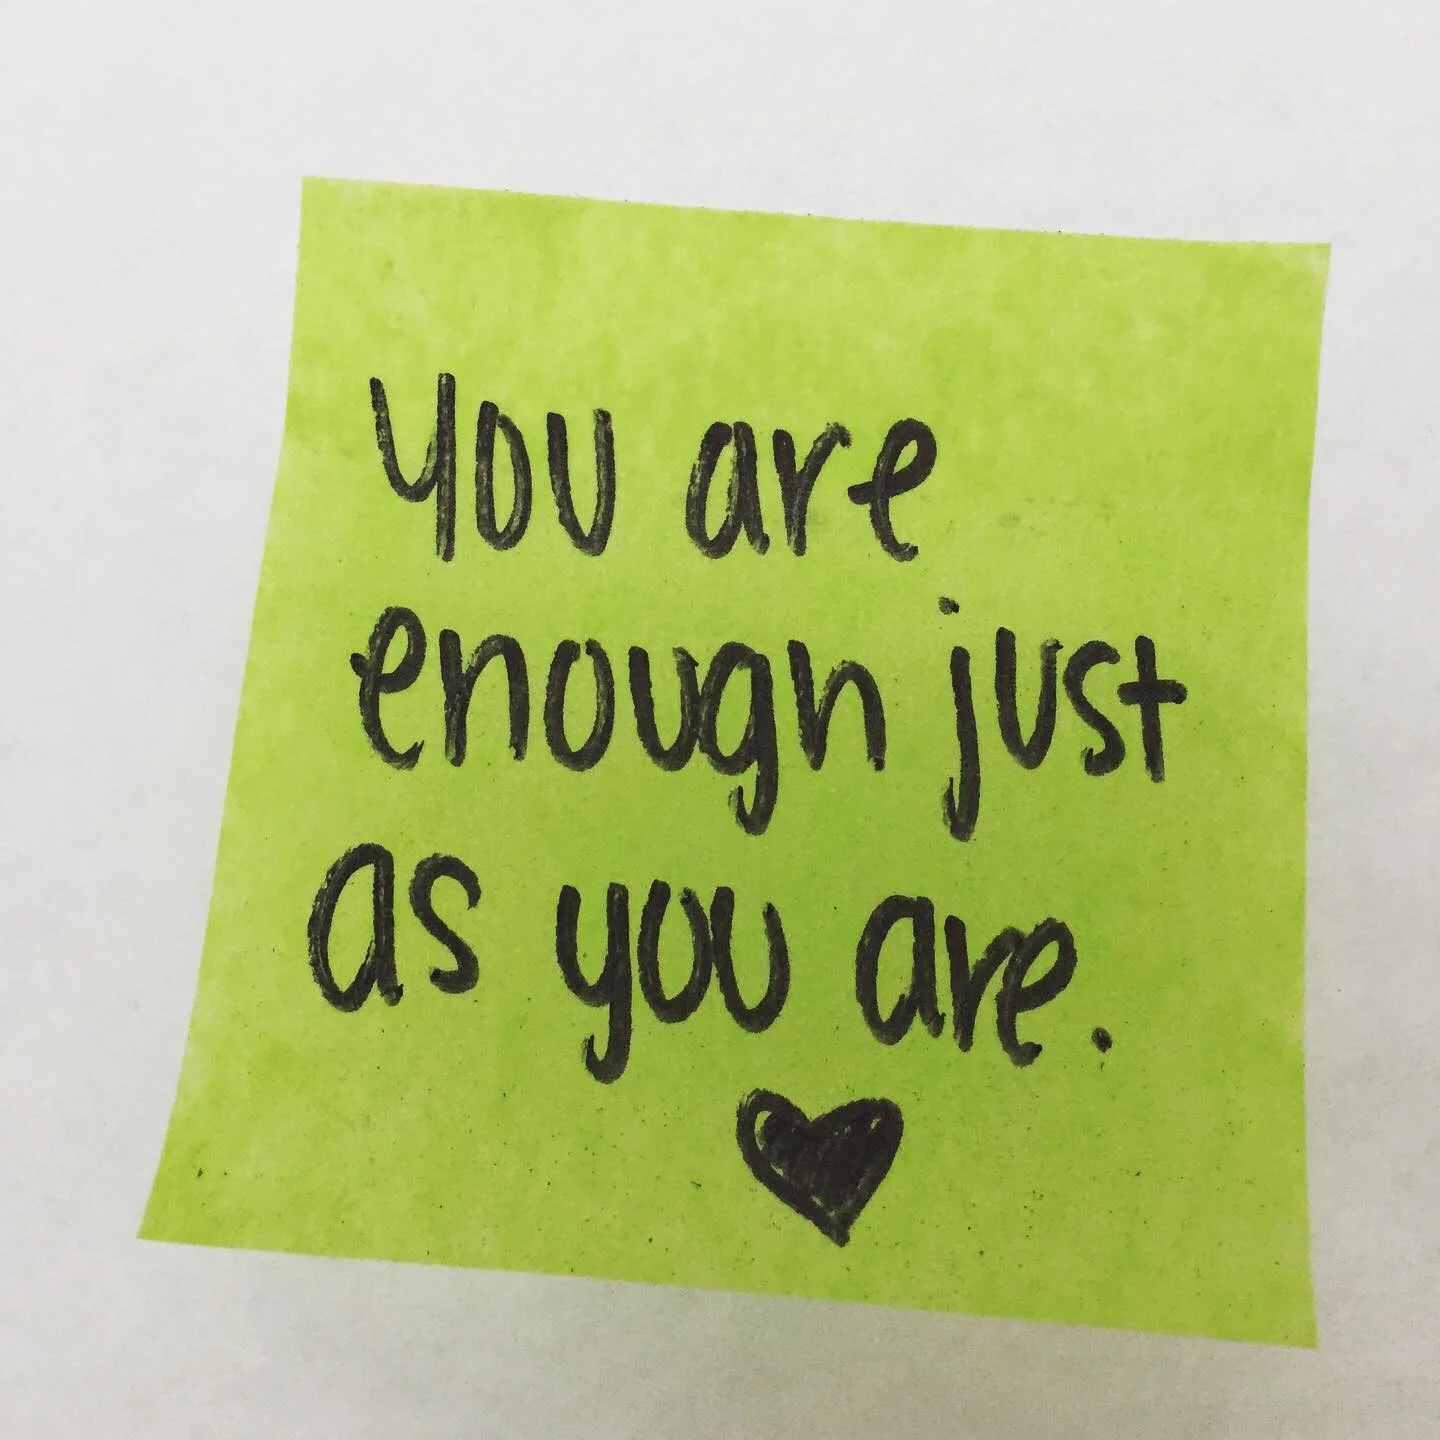 You are
enough just
as you are.